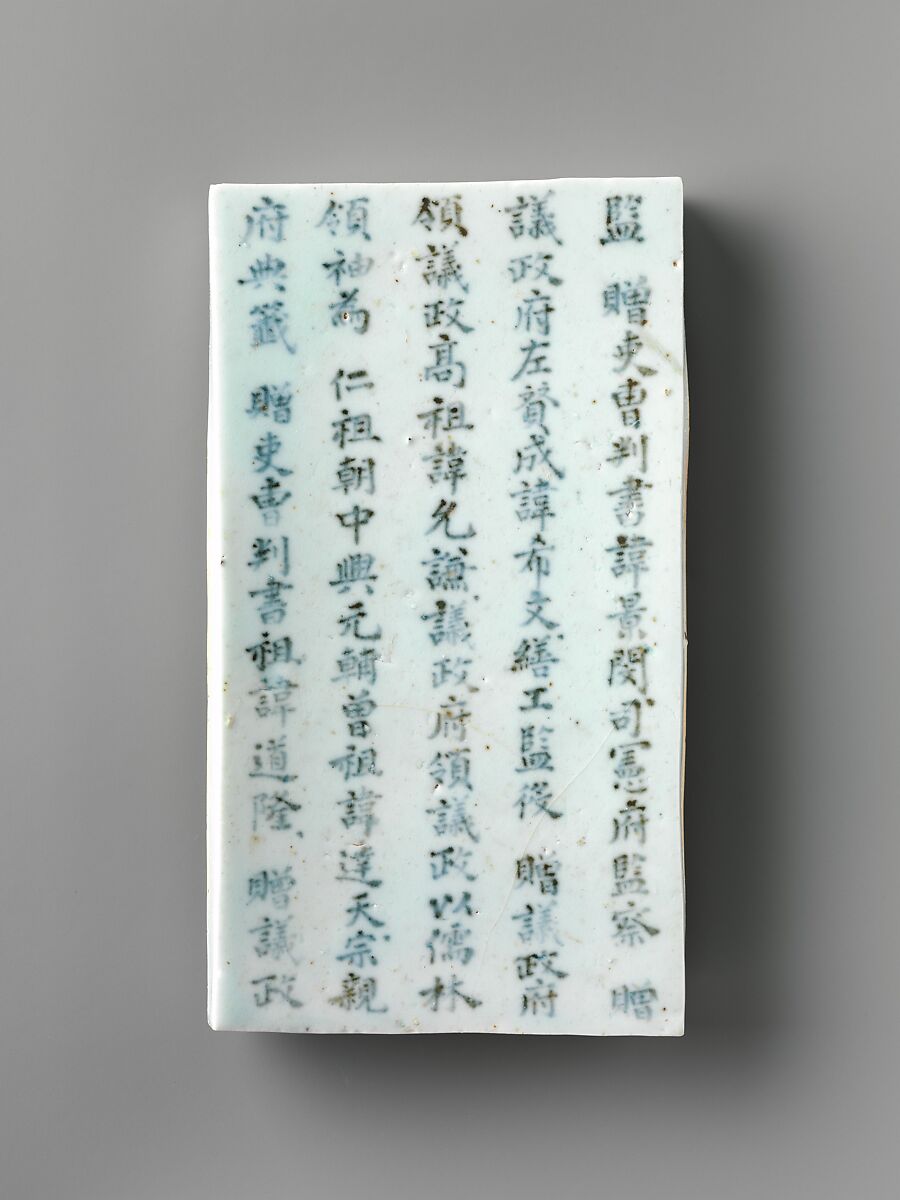 監 贈吏曹判書諱景閔司憲府監察 贈
議政府左贊成諱希文繕工監役 贈議政府
領議政高祖諱允謙議政府領議政以儒林
領袖為 仁祖朝中興元輔曾祖諱達天宗親
府典籤 贈吏曹判書祖諱道隆 贈議政